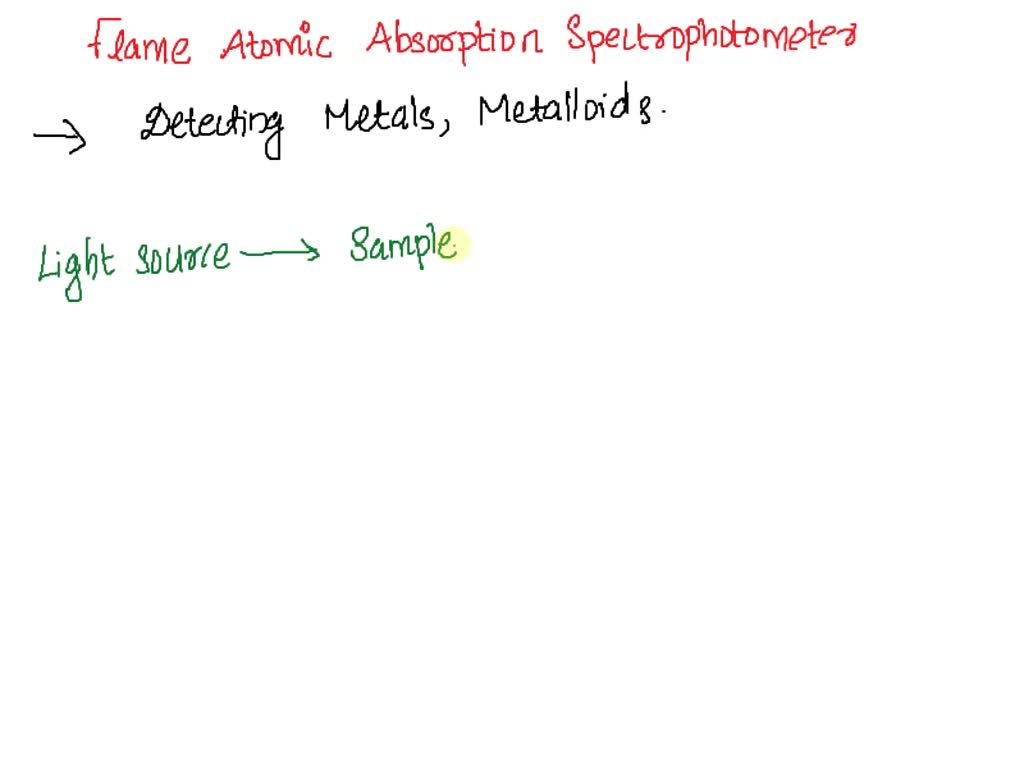 Flame Atomic Absorption Spectrophotometer
→ Detecting Metals, Metalloids.
Light source → Sample